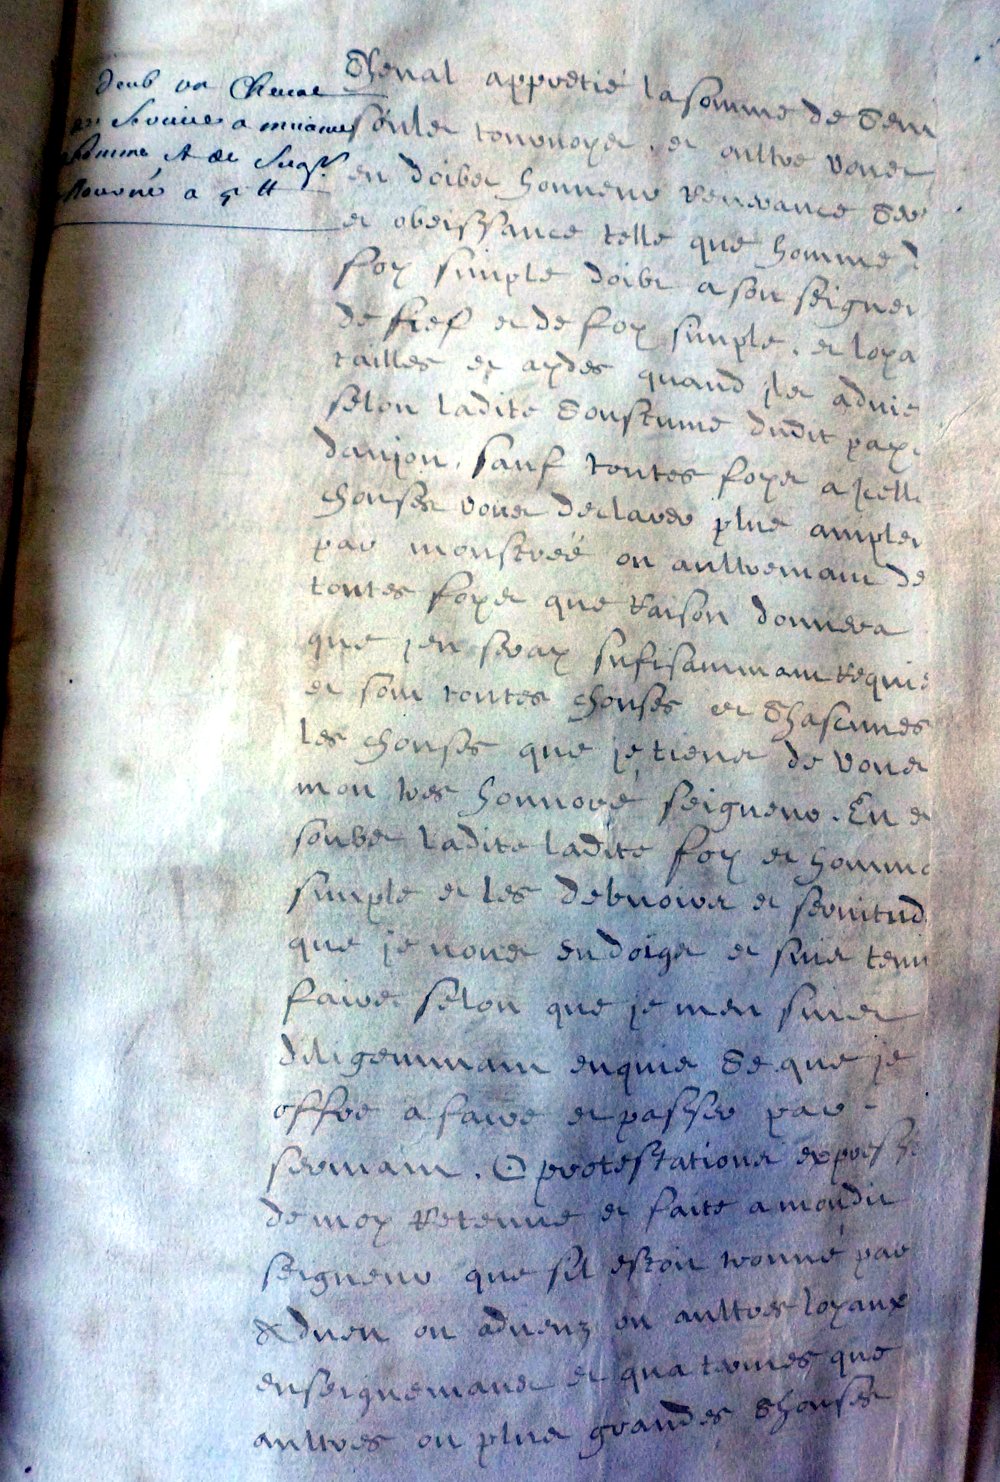 doub un Cheval
de service a muance
dhomme, et de Seigr
estimé a 5 tt
Cheval appretié la somme de Cent
soulz tournoys. et oultre vous
en doibs honneur reverance Ser
et obeissance telle que homme d
foy simple doibt a son seigneu
de fief et de foy simple. et loya
tailles et aydes quand ilz advie
selon ladite Coustume dudit pays
danjou. sauf toutes foys a icell
chouses vous declarer plus ampler
par monstreé ou aultremant de
toutes foys que Raison donnera
que jen seray sufisammant Requis
et sont toutes chouses et Chascunes
les chouses que je tiens de vous
mon tres honnoré seigneur. En e
soubz ladite ladite foy et homma
simple et les debvoirs et servitud
que je vous en doigs et suis tenu
faire selon que je men suis
diligemmant enquis Ce que je
offre a faire et passer par
sermant. O protestations expresse
de moy Retenue et faite a mondit
seigneur que sil estoit trouvé par
Adveu ou adveuz ou aultres loyaux
enseignemans et quaternes que
aultres ou plus grandes Chouses